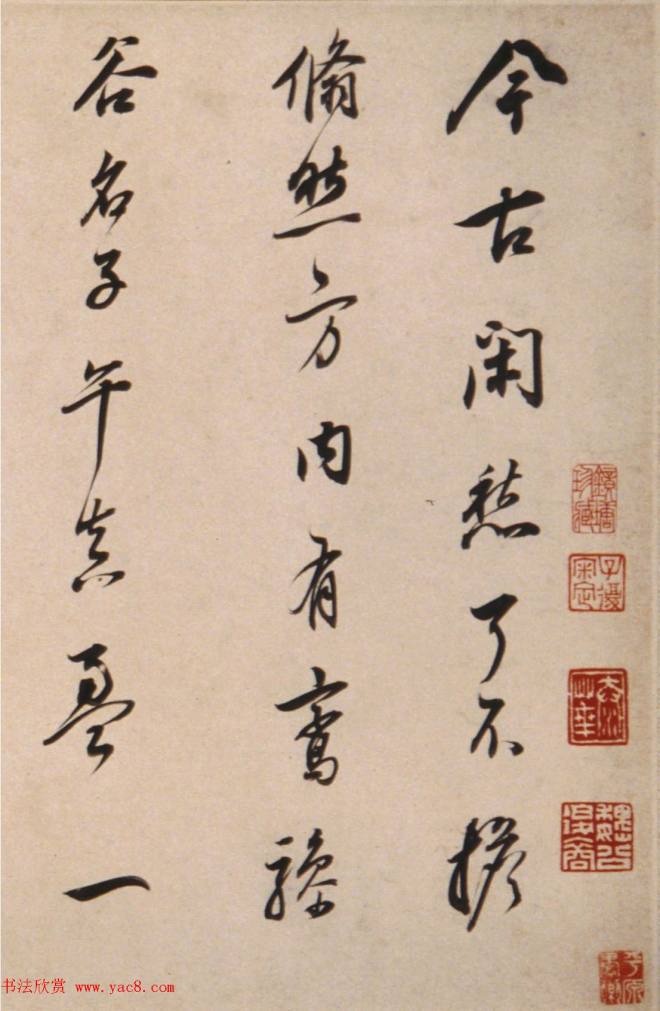 今古閑愁了不擔
翛然方内有鸞驂
谷名子午真盈一
书法欣赏 www.yac8.com